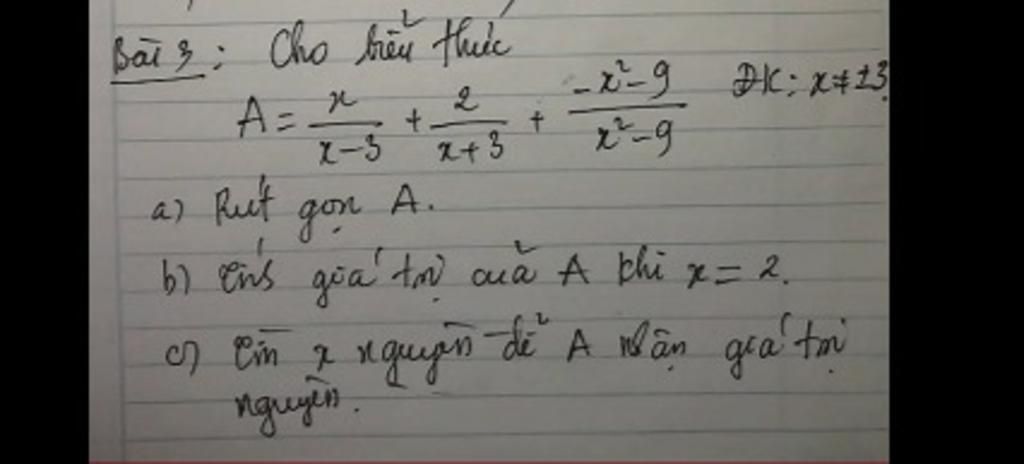 Bài 3: Cho biểu thức
A = x/(x-3) + 2/(x+3) + (-x²-9)/(x²-9) ĐK: x ≠ ±3
a) Rút gọn A.
b) Tính giá trị của A khi x = 2.
c) Tìm x nguyên để A nhận giá trị
nguyên.